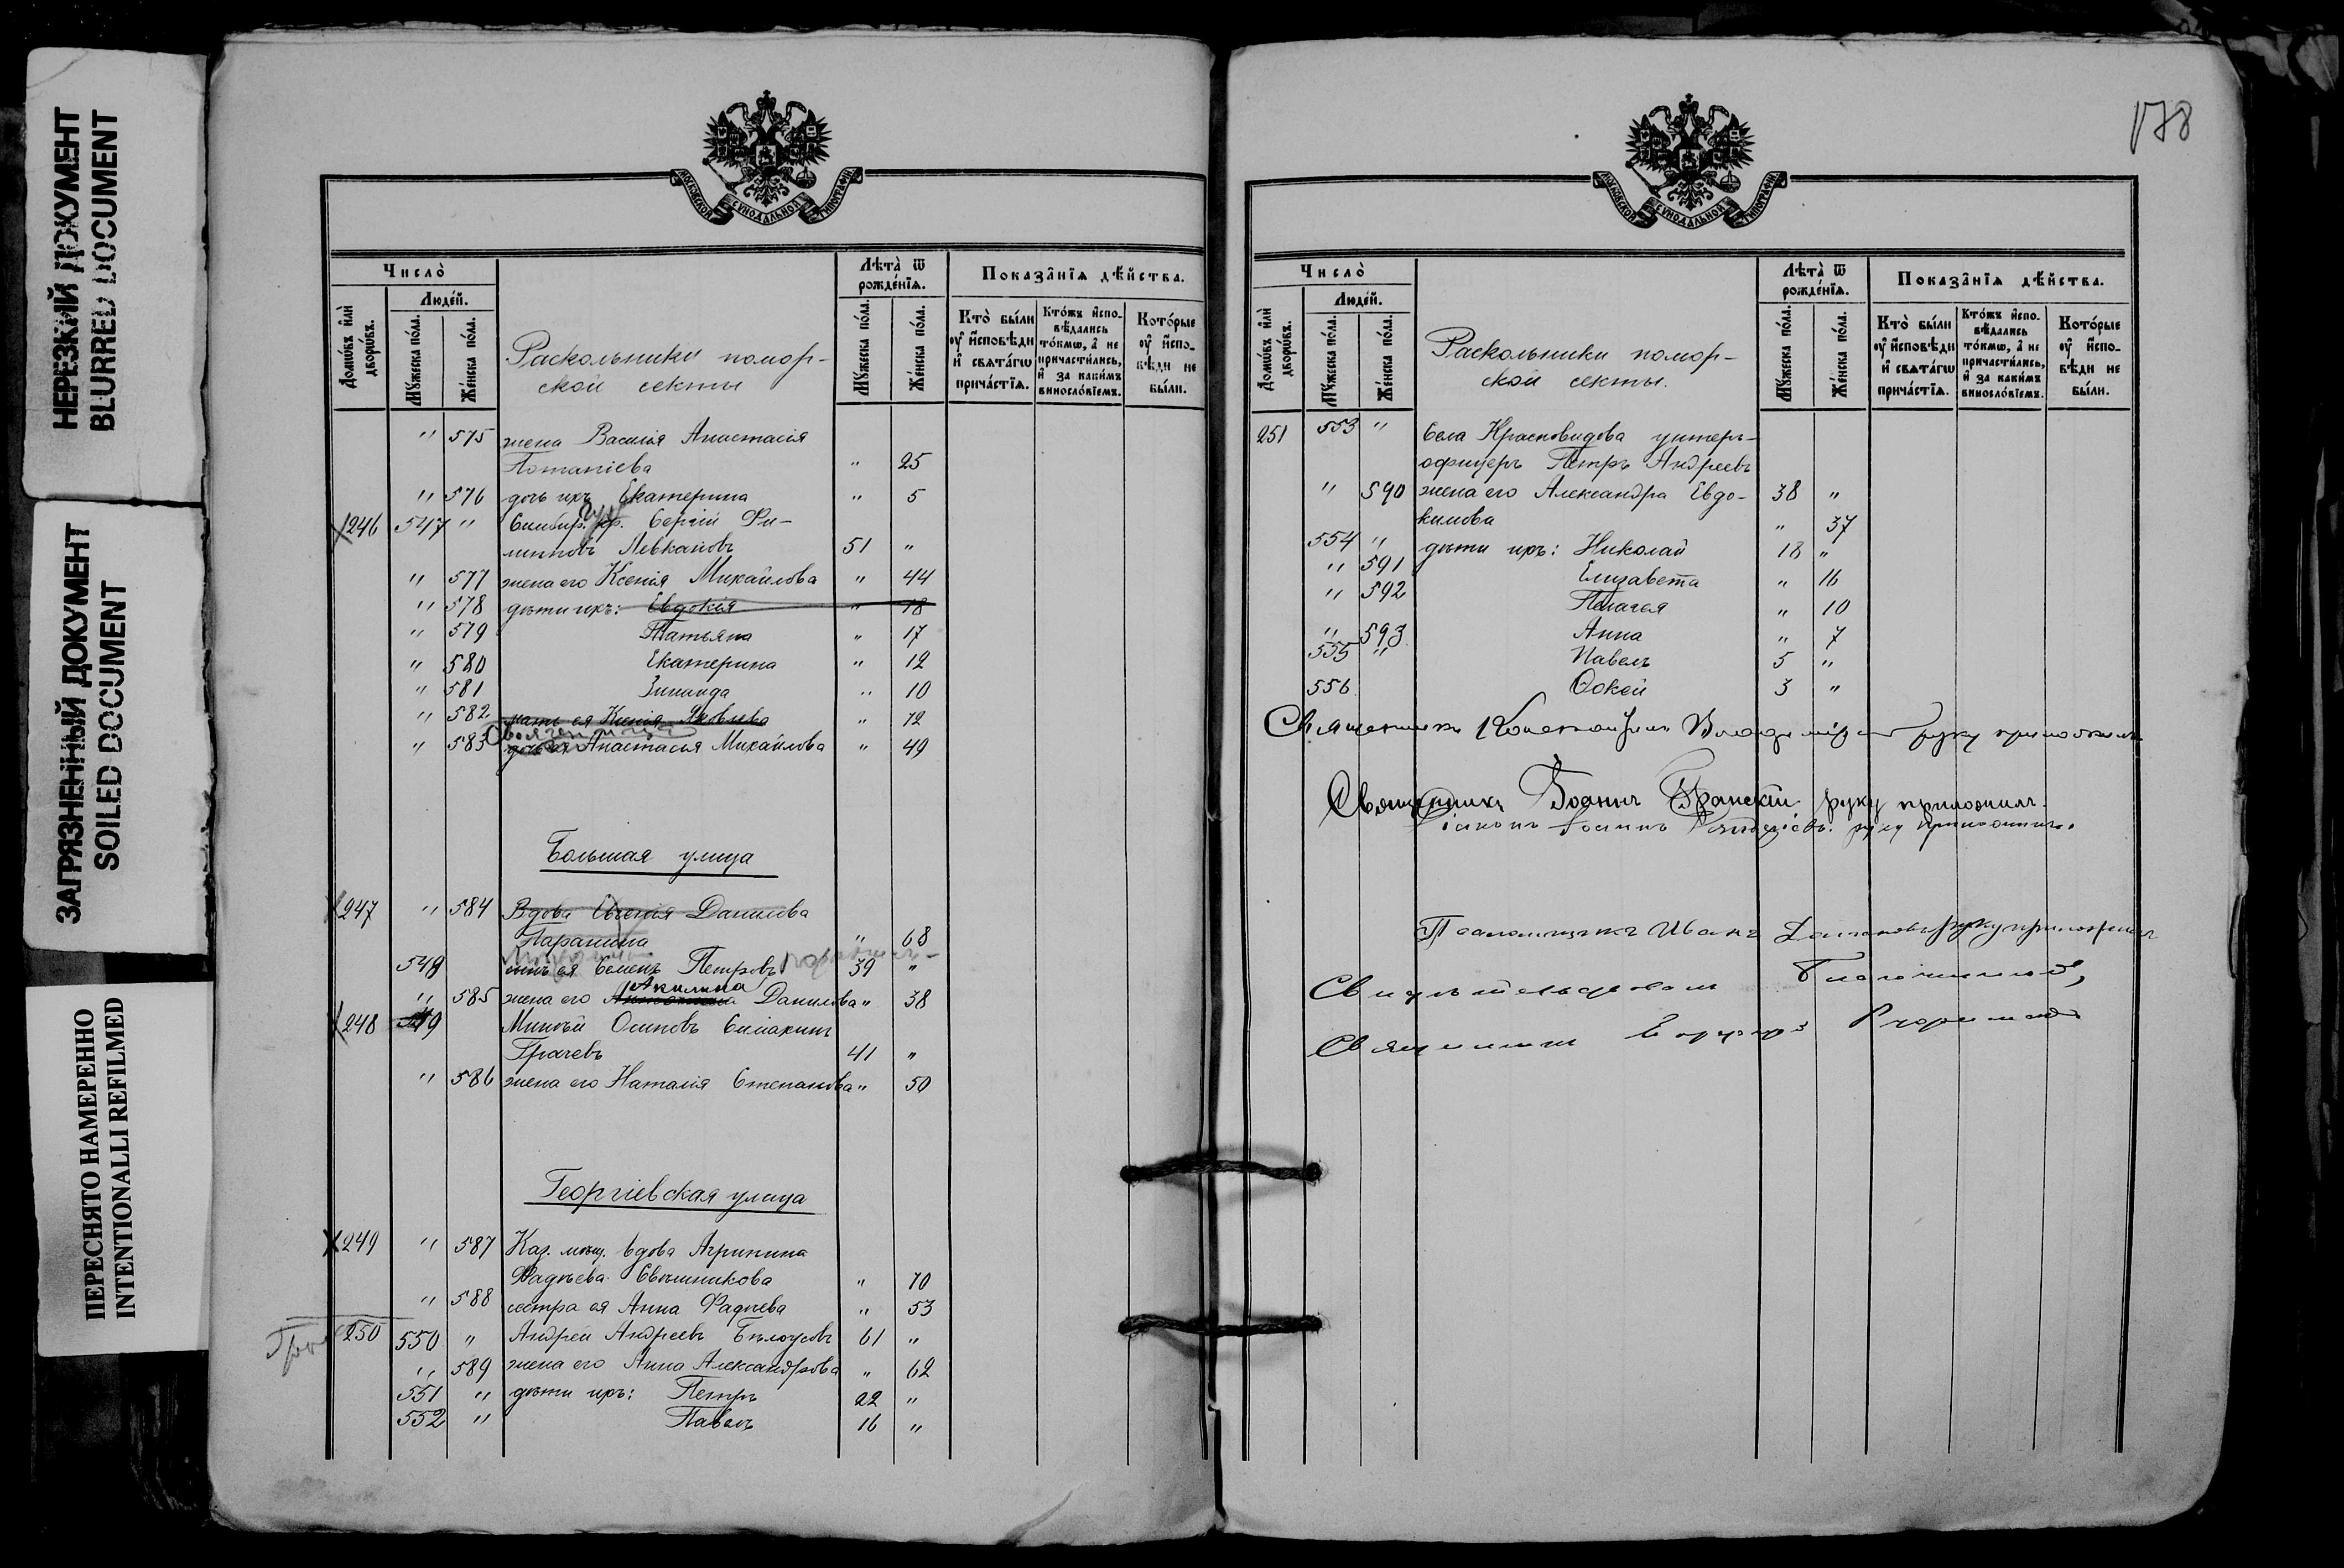 НЕРЕЗКИЙ ДОКУМЕНТ
BLURRED DOCUMENT
ЗАГРЯЗНЕННЫЙ ДОКУМЕНТ
SOILED DOCUMENT
ПЕРЕСНЯТО НАМЕРЕННО
INTENTIONALLI REFILMED
МОСКОВСКОЙ СѴНОДАЛЬНОЙ ТИПОГРАФІИ
Число̀
Людей.
Домѡвъ и҆лѝ дворѡвъ.
Мꙋжеска по́ла.
Же́нска по́ла.
Раскольники помор-
ской секты
Лѣта̀ ѿ рожде́нїѧ.
Мꙋжеска по́ла.
Же́нска по́ла.
Показа̑нїѧ дѣ́йства.
Кто̀ бы́ли ᲂу҆ и҆сповѣ́ди и҆ свѧта́гѡ прича́стїѧ.
Кто́жъ и҆спо-вѣ́дались то́кмѡ, а҆ не причасти́лись, и҆ за каки́мъ виносло́вїемъ.
Кото́рые ᲂу҆ и҆спо-вѣ́ди не бы́ли.
" 575 жена Василія Анастасія
Потапіева " 25
" 576 дочь ихъ Екатерина " 5
246 547 " Симбир. кр. Сергій Фи-
липповъ Левкаковъ 51 "
" 577 жена его Ксенія Михайлова " 44
" 578 дѣти ихъ: Евдокія " 18
" 579 Татьяна " 17
" 580 Екатерина " 12
" 581 Зинаида " 10
" 582 мать ея Ксенія Яковлева " 72
" 583 Своячениця Анастасья Михайлова " 49
Большая улица
247 " 584 Вдова Евгенія Данилова
Паранина " 68
548 сынъ ея Семенъ Петровъ 39 "
" 585 жена его Акилина Данилова " 38
248 549 Михѣй Осиповъ Симакинъ
Грачевъ 41 "
" 586 жена его Наталія Степанова " 50
Георгіевская улица
249 " 587 Каз. мѣщ. вдова Агрипина
Фадѣева Свѣшникова " 70
" 588 сестра ея Анна Фадѣева " 53
250 550 " Андрей Андреевъ Бѣлоусовъ 61 "
" 589 жена его Анна Александрова " 62
551 " дѣти ихъ: Петръ 22 "
552 " Павелъ 16 "
178
МОСКОВСКОЙ СѴНОДАЛЬНОЙ ТИПОГРАФІИ
Число̀
Людей.
Домѡвъ и҆лѝ дворѡвъ.
Мꙋжеска по́ла.
Же́нска по́ла.
Раскольники помор-
ской секты.
Лѣта̀ ѿ рожде́нїѧ.
Мꙋжеска по́ла.
Же́нска по́ла.
Показа̑нїѧ дѣ́йства.
Кто̀ бы́ли ᲂу҆ и҆сповѣ́ди и҆ свѧта́гѡ прича́стїѧ.
Кто́жъ и҆спо-вѣ́дались то́кмѡ, а҆ не причасти́лись, и҆ за каки́мъ виносло́вїемъ.
Кото́рые ᲂу҆ и҆спо-вѣ́ди не бы́ли.
251 553 " Села Красновидова унтеръ-
офицеръ Петръ Андреевъ
" 590 жена его Александра Евдо- 38 "
кимова " 37
554 " дѣти ихъ: Николай 18 "
" 591 Елизавета " 16
" 592 Пелагея " 10
" 593 Анна " 7
555 " Павелъ 5 "
556 Фокей 3 "
Священникъ Константинъ руку приложилъ
Священникъ Іоаннъ руку приложилъ.
Діаконъ Іоаннъ руку приложилъ.
Псаломщикъ Иванъ руку приложилъ
Свидѣтельствовалъ Благочинный,
Священникъ